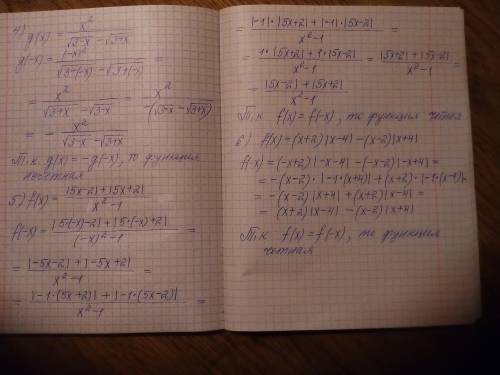 4) g(x) = x² / (√(3-x) - √(3+x))
g(-x) = (-x)² / (√(3-(-x)) - √(3+(-x))) =
= x² / (√(3+x) - √(3-x)) = x² / (-(√(3-x) - √(3+x))) =
= - x² / (√(3-x) - √(3+x))
Т.к. g(x) = -g(-x), то функция
нечетная
5) f(x) = (|5x-2| + |5x+2|) / (x²-1)
f(-x) = (|5·(-x)-2| + |5·(-x)+2|) / ((-x)²-1) =
= (|-5x-2| + |-5x+2|) / (x²-1) =
= (|-1·(5x+2)| + |-1·(5x-2)|) / (x²-1) =
= (|-1|·|5x+2| + |-1|·|5x-2|) / (x²-1) =
= (1·|5x+2| + 1·|5x-2|) / (x²-1) = (|5x+2| + |5x-2|) / (x²-1) =
= (|5x-2| + |5x+2|) / (x²-1)
Т.к. f(x) = f(-x), то функция четная
6) f(x) = (x+2)|x-4| - (x-2)|x+4|
f(-x) = (-x+2)|-x-4| - (-x-2)|-x+4| =
= -(x-2)·|-1·(x+4)| + (x+2)·|-1·(x-4)| =
= -(x-2)|x+4| + (x+2)|x-4| =
= (x+2)|x-4| - (x-2)|x+4|
Т.к. f(x) = f(-x), то функция
четная